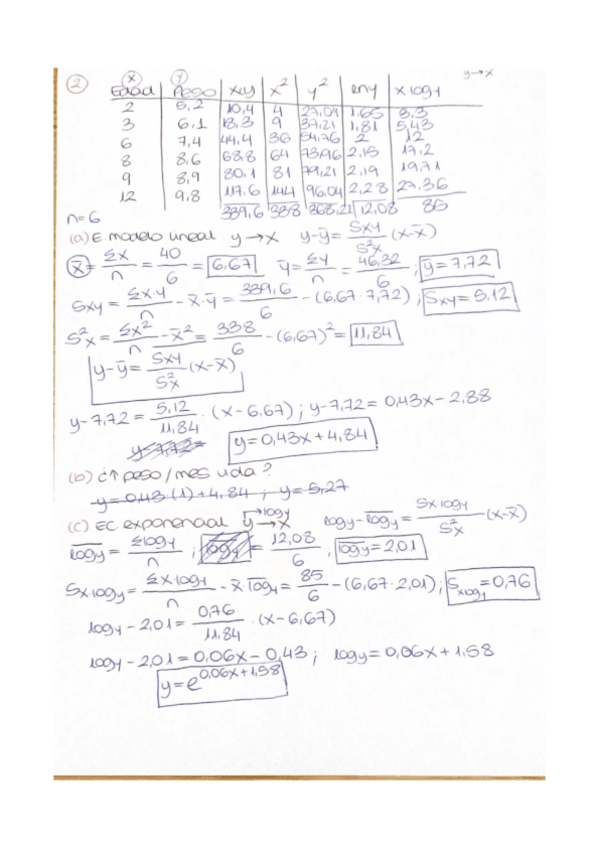 y→x
② x y
Edad Peso x·y x² y² lny x logy
2 5,2 10,4 4 27,04 1,65 3,3
3 6,1 18,3 9 37,21 1,81 5,43
6 7,4 44,4 36 54,76 2 12
8 8,6 68,8 64 73,96 2,15 17,2
9 8,9 80,1 81 79,21 2,19 19,71
12 9,8 117,6 144 96,04 2,28 27,36
n=6 339,6 338 368,21 12,08 85
(a) E. modelo lineal y→x y-ȳ= Sxy/S²x (x-x̄)
x̄= Σx/n = 40/6 = 6,67 ȳ= Σy/n = 46,32/6 ; ȳ=7,72
Sxy= Σx·y/n - x̄·ȳ= 339,6/6 - (6,67·7,72) ; Sxy=5,12
S²x= Σx²/n - x̄²= 338/6 - (6,67)²= 11,84
y-ȳ= Sxy/S²x (x-x̄)
y-7,72= 5,12/11,84 · (x-6,67) ; y-7,72= 0,43x-2,88
y-7,72= y=0,43x+4,84
(b) ¿↑ peso/mes vida?
y=0,43(1)+4,84 ; y=5,27
(c) EC exponencial y→x →logy logy-logy= Sxlogy/S²x (x-x̄)
logy= Σlogy/n ; logy = 12,08/6 ; logy=2,01
Sx·logy= Σx·logy/n - x̄·logy= 85/6 - (6,67·2,01) ; Sxlogy=0,76
logy-2,01= 0,76/11,84 ·(x-6,67)
logy-2,01=0,06x-0,43 ; logy=0,06x+1,58
y=e^0,06x+1,58